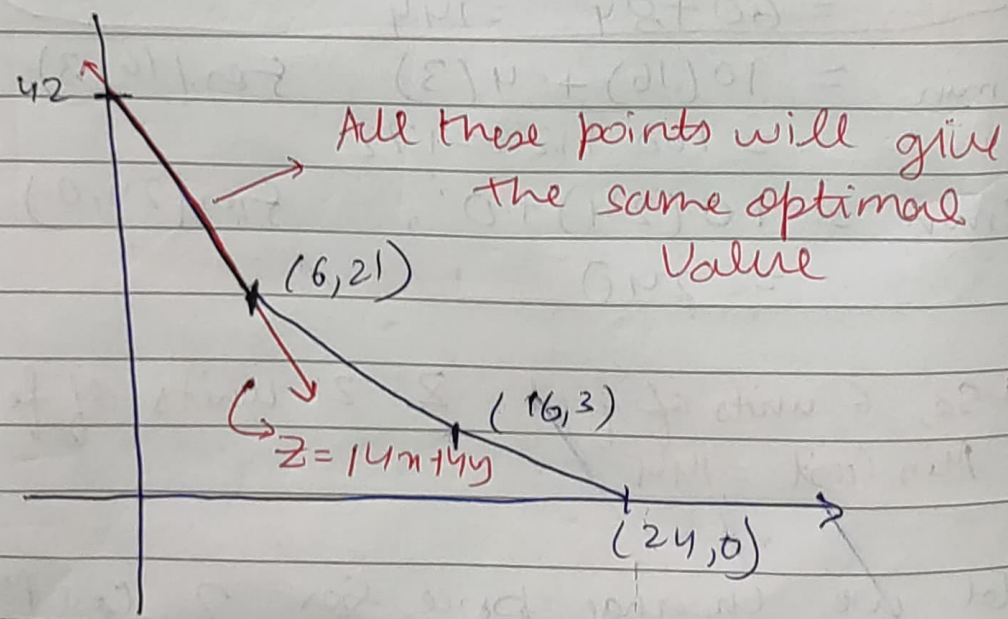 42
All these points will give
the same optimal
Value
(6,21)
(16,3)
Z=14x+4y
(24,0)